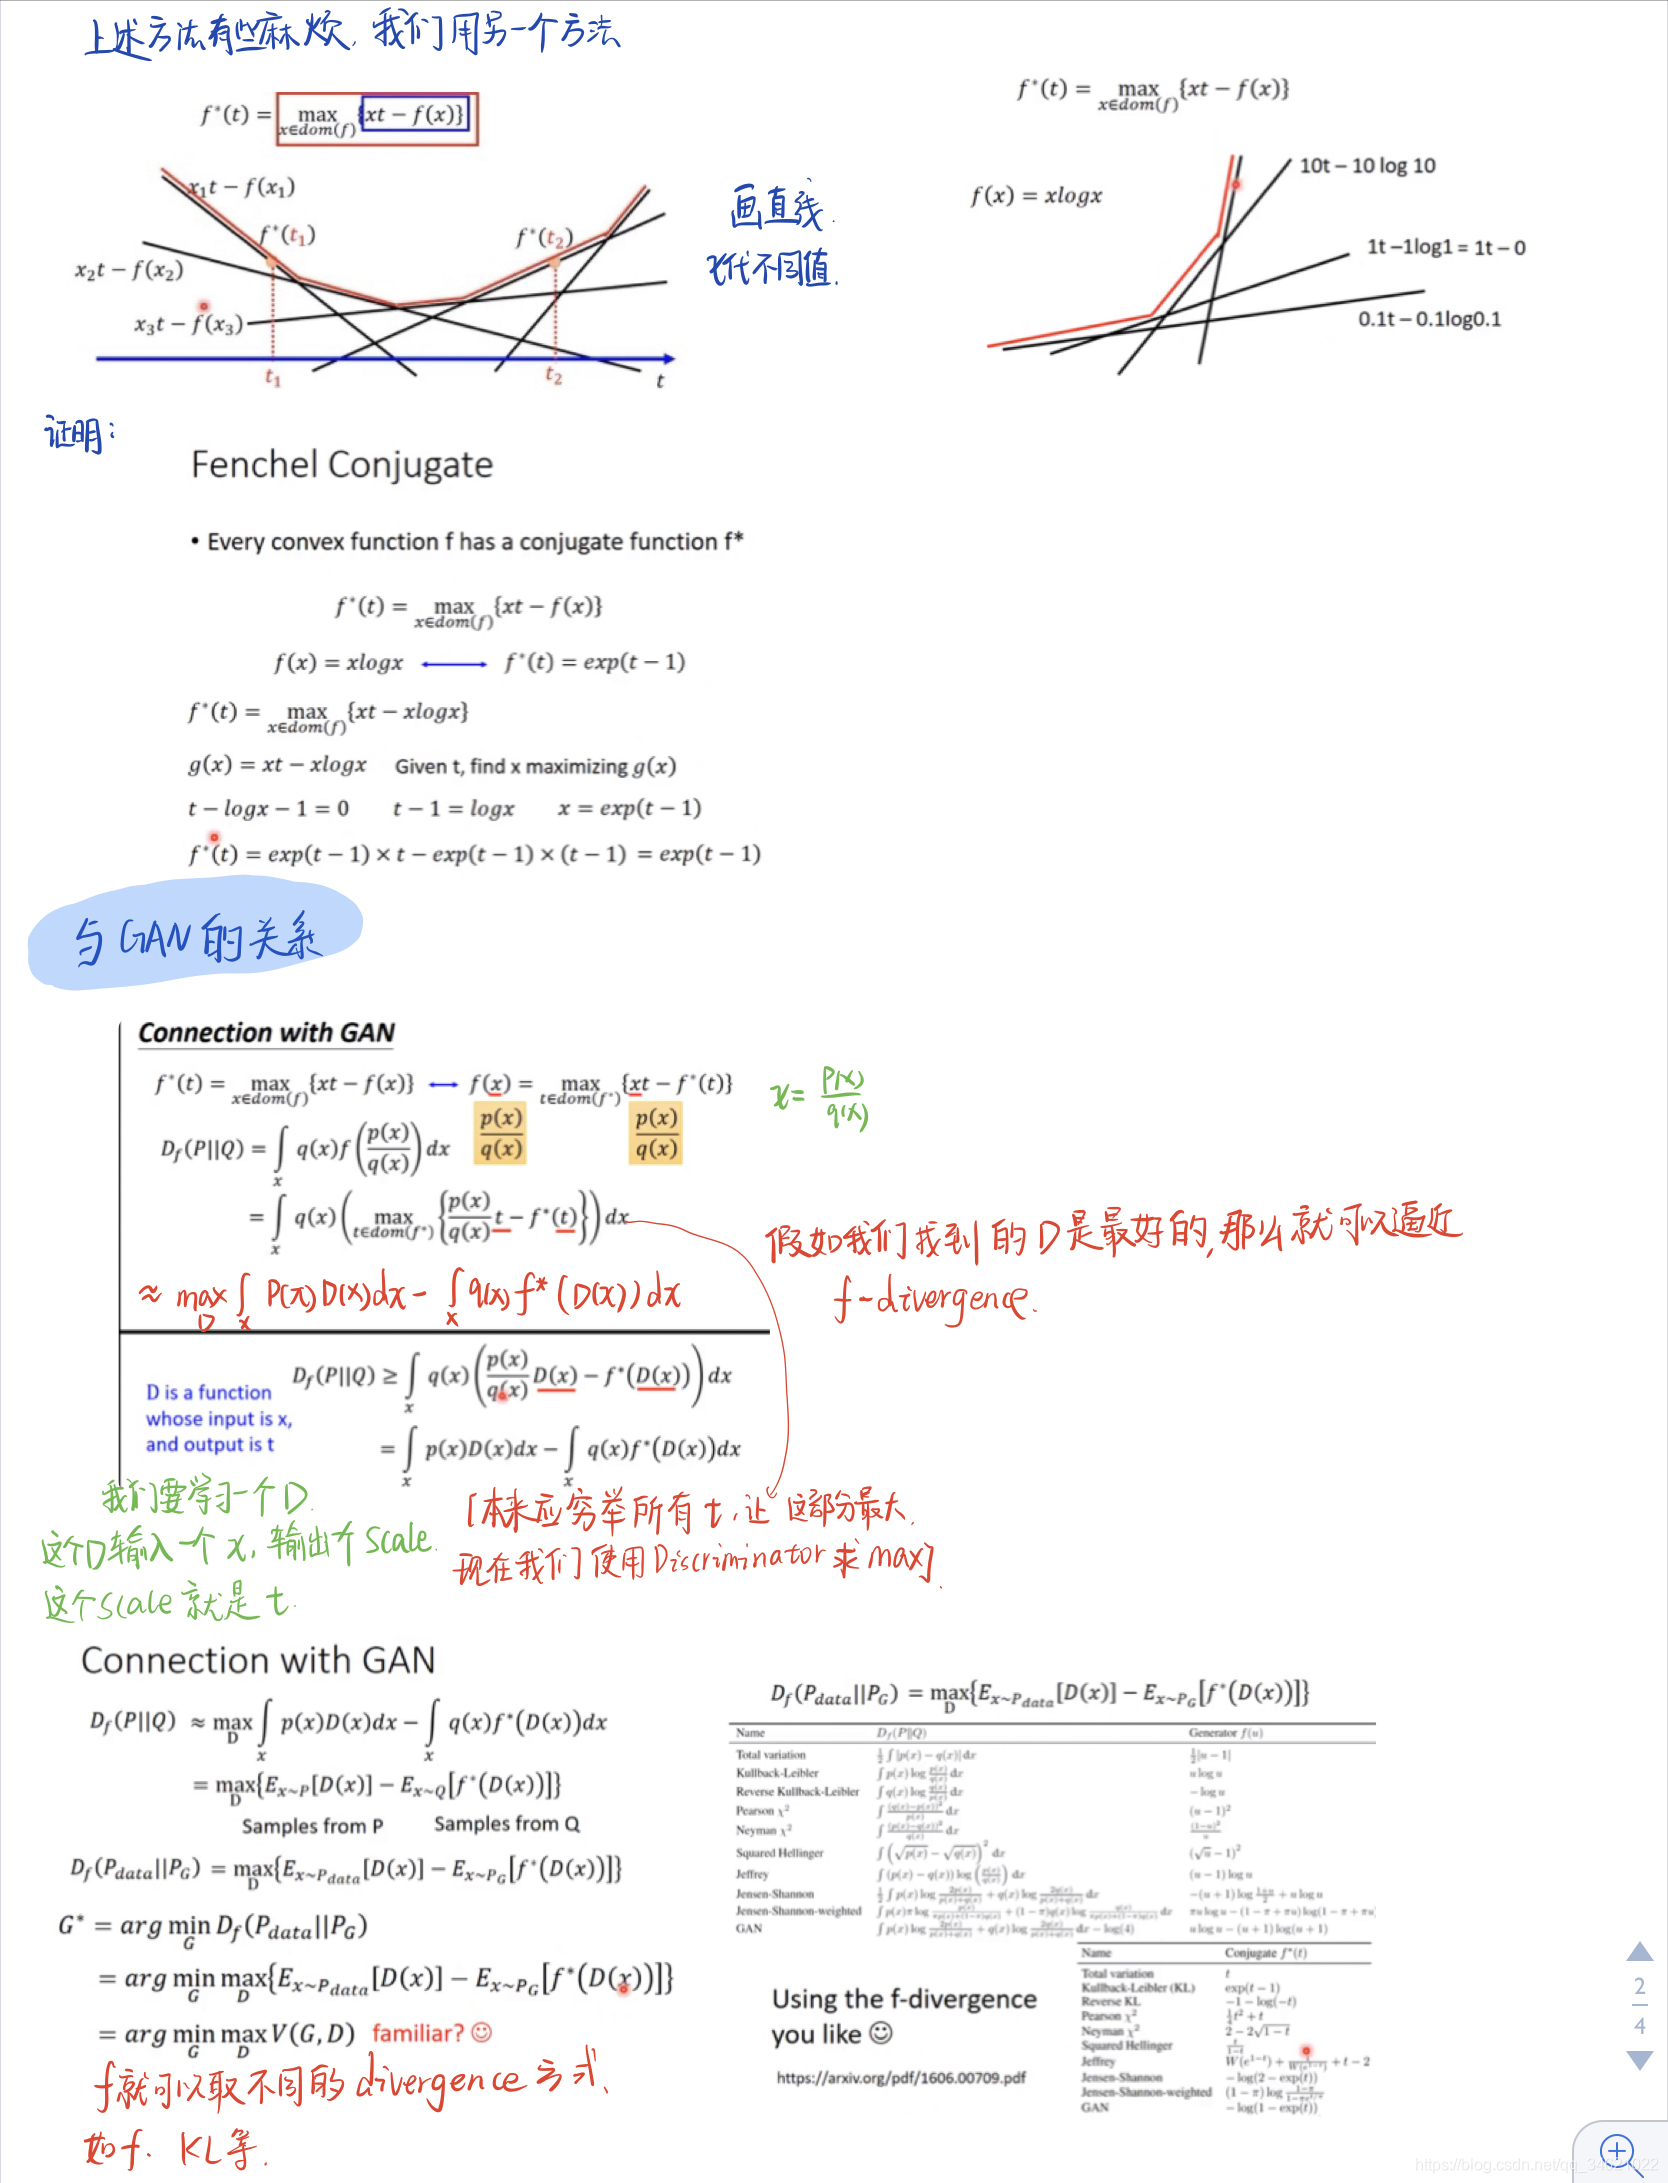 上述方法有些麻烦, 我们用另一个方法
f*(t) = max_{x∈dom(f)} {xt − f(x)}
x₁t − f(x₁)
f*(t₁)
f*(t₂)
x₂t − f(x₂)
x₃t − f(x₃)
t₁
t₂
t
画直线.
x代不同值.
f*(t) = max_{x∈dom(f)} {xt − f(x)}
f(x) = xlogx
10t − 10 log 10
1t −1log1 = 1t − 0
0.1t − 0.1log0.1
证明:
Fenchel Conjugate
• Every convex function f has a conjugate function f*
f*(t) = max_{x∈dom(f)} {xt − f(x)}
f(x) = xlogx ⟷ f*(t) = exp(t − 1)
f*(t) = max_{x∈dom(f)} {xt − xlogx}
g(x) = xt − xlogx Given t, find x maximizing g(x)
t − logx − 1 = 0 t − 1 = logx x = exp(t − 1)
f*(t) = exp(t − 1) × t − exp(t − 1) × (t − 1) = exp(t − 1)
与GAN的关系
Connection with GAN
f*(t) = max_{x∈dom(f)} {xt − f(x)} ⟷ f(x) = max_{t∈dom(f*)} {xt − f*(t)}
p(x)/q(x) p(x)/q(x)
x = P(x)/q(x)
D_f(P||Q) = ∫_x q(x) f(p(x)/q(x)) dx
= ∫_x q(x) (max_{t∈dom(f*)} {p(x)/q(x) t − f*(t)}) dx
≈ max_D ∫_x P(x)D(x)dx − ∫_x q(x) f*(D(x))dx
假如我们找到的D是最好的, 那么就可以逼近
f-divergence.
D_f(P||Q) ≥ ∫_x q(x) (p(x)/q(x) D(x) − f*(D(x))) dx
= ∫_x p(x)D(x)dx − ∫_x q(x)f*(D(x))dx
D is a function
whose input is x,
and output is t
我们要学习一个D.
这个D输入一个x, 输出个scale.
这个scale就是t.
[本来应穷举所有t, 让这部分最大.
现在我们使用Discriminator求max].
Connection with GAN
D_f(P||Q) ≈ max_D ∫_x p(x)D(x)dx − ∫_x q(x)f*(D(x))dx
= max_D {E_{x~P}[D(x)] − E_{x~Q}[f*(D(x))]}
Samples from P Samples from Q
D_f(P_data||P_G) = max_D {E_{x~P_data}[D(x)] − E_{x~P_G}[f*(D(x))]}
G* = arg min_G D_f(P_data||P_G)
= arg min_G max_D {E_{x~P_data}[D(x)] − E_{x~P_G}[f*(D(x))]}
= arg min_G max_D V(G, D) familiar? ☺
f就可以取不同的divergence方式、
如f、KL等.
D_f(P_data||P_G) = max_D {E_{x~P_data}[D(x)] − E_{x~P_G}[f*(D(x))]}
Name D_f(P||Q) Generator f(u)
Total variation ½ ∫ |p(x) − q(x)| dx ½|u − 1|
Kullback-Leibler ∫ p(x) log p(x)/q(x) dx u log u
Reverse Kullback-Leibler ∫ q(x) log q(x)/p(x) dx − log u
Pearson χ² ∫ (q(x)−p(x))²/p(x) dx (u − 1)²
Neyman χ² ∫ (p(x)−q(x))²/q(x) dx (1−u)²/u
Squared Hellinger ∫ (√p(x) − √q(x))² dx (√u − 1)²
Jeffrey ∫ (p(x) − q(x)) log (p(x)/q(x)) dx (u − 1) log u
Jensen-Shannon ½ ∫ p(x) log 2p(x)/(p(x)+q(x)) + q(x) log 2q(x)/(p(x)+q(x)) dx −(u + 1) log (1+u)/2 + u log u
Jensen-Shannon-weighted ∫ p(x)π log p(x)/(πp(x)+(1−π)q(x)) + (1 − π)q(x) log q(x)/(πp(x)+(1−π)q(x)) dx πu log u − (1 − π + πu) log(1 − π + πu)
GAN ∫ p(x) log 2p(x)/(p(x)+q(x)) + q(x) log 2q(x)/(p(x)+q(x)) dx − log(4) u log u − (u + 1) log(u + 1)
Name Conjugate f*(t)
Total variation t
Kullback-Leibler (KL) exp(t − 1)
Reverse KL −1 − log(−t)
Pearson χ² ¼t² + t
Neyman χ² 2 − 2√(1 − t)
Squared Hellinger t/(1−t)
Jeffrey W(e^{1−t}) + 1/W(e^{1−t}) + t − 2
Jensen-Shannon − log(2 − exp(t))
Jensen-Shannon-weighted (1 − π) log (1−π)/(1−πe^{t/π})
GAN − log(1 − exp(t))
Using the f-divergence
you like ☺
https://arxiv.org/pdf/1606.00709.pdf
2
4